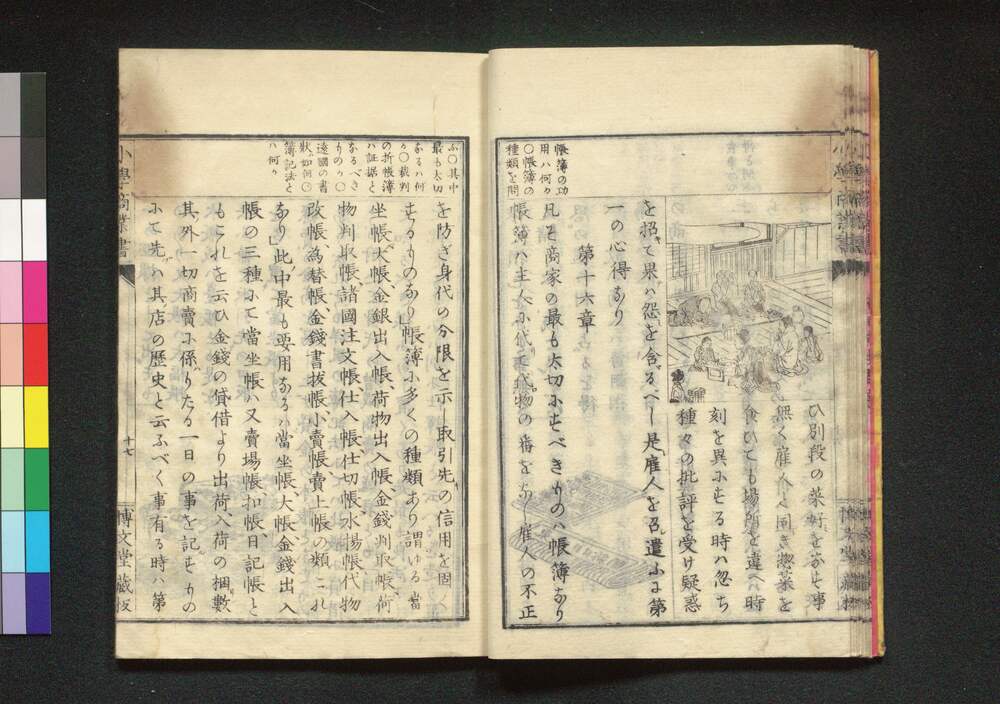 ひ別段の菜好をなす事
無く雇人と同き惣菜を
食ひても場所を違へ時
刻を異にする時ハ忽ち
種々の批評を受け疑惑
を招て果ハ怨を含るべし是雇人を召遣ふに第
一の心得なり
第十六章
凡そ商家の最も大切にすべきものハ帳簿なり
帳簿ハ主人に代て代物の番をなし雇人の不正
帳簿の功
用ハ何々
〇帳簿の
種類を問
ふ〇其中
最も太切
なるハ何
々〇裁判
の折帳簿
ハ証據と
なるべき
ものか〇
遠國の書
状ハ如何〇
簿記法と
ハ何か
を防ぎ身代の分限を示し取引先の信用を固く
するものなり」帳簿に多くの種類あり謂ゆる當
坐帳、大帳、金銀出入帳、荷物出入帳、金錢判取帳、荷
物判取帳、諸國注文帳、仕入帳、仕切帳、水揚帳、代物
改帳、為替帳、金錢書拔帳、小賣帳、賣上帳の類これ
なり」此中最も要用なるハ當坐帳、大帳、金錢出入
帳の三種にて當坐帳ハ又賣場帳扣帳日記帳と
もこれを云ひ金錢の貸借より出荷入荷の捆數
其外一切商賣に係りたる一日の事を記すもの
にて先ハ其店の歴史と云ふべく事有る時ハ第
小學商業書
十七
博文堂藏板